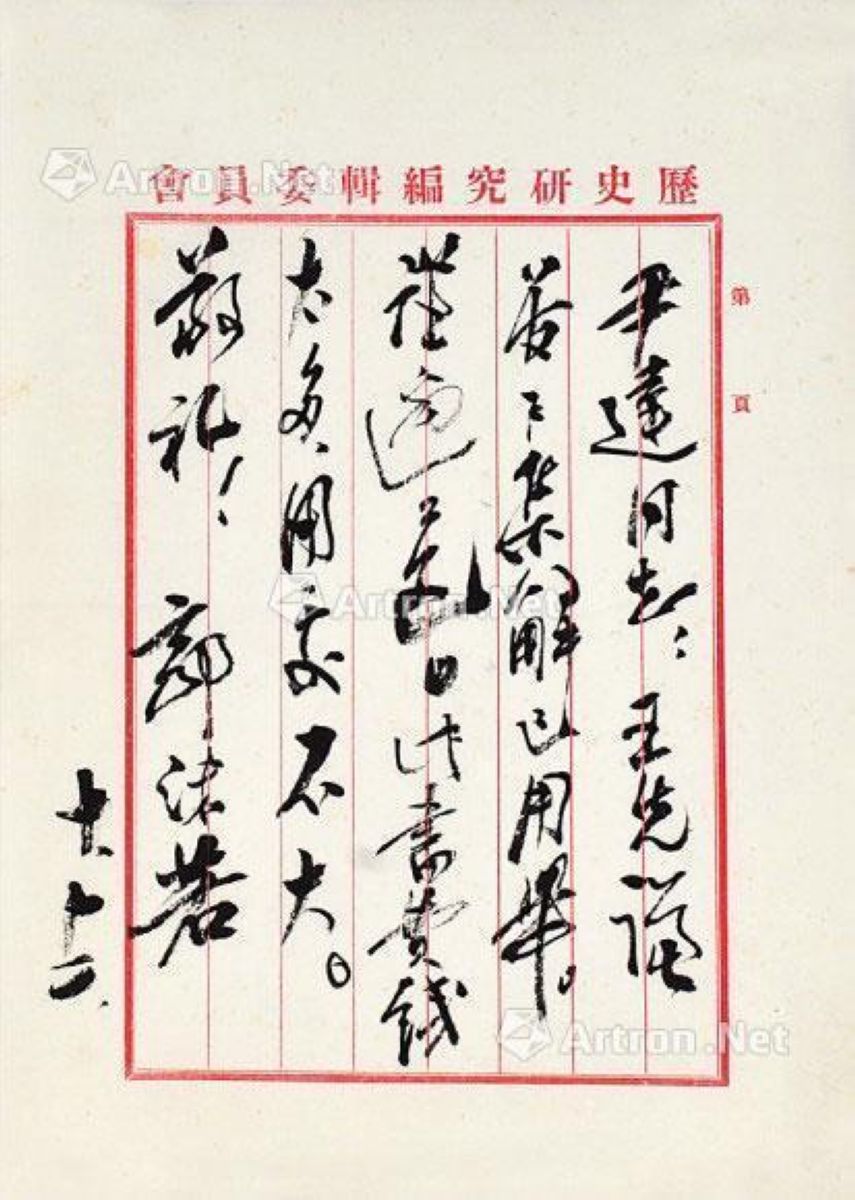 歷史研究編輯委員會
第 頁
尹達同志：王先謙
荀子集解已用畢。
此書費錢
太多，用處不大。
敬禮！ 郭沫若
Artron.Net
Artron.Net
Artron.Net